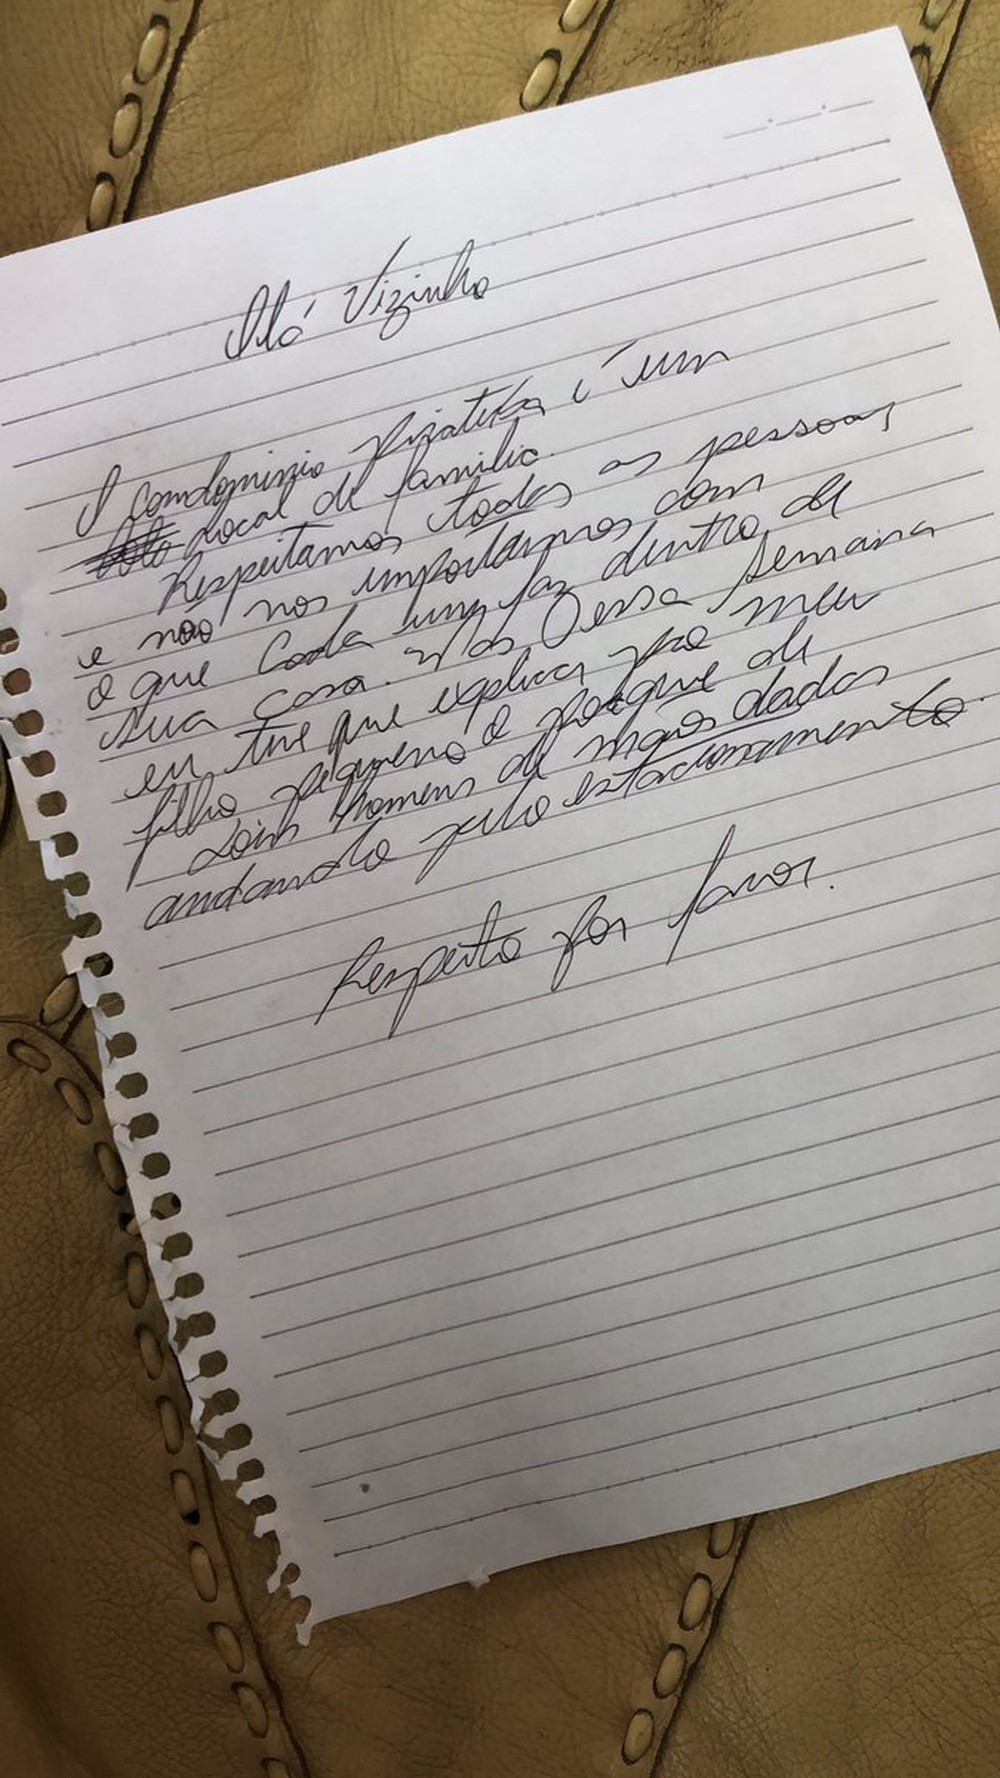 Olá Vizinho
O condomínio Piratuba é um
local de família.
Respeitamos todas as pessoas
e não nos importamos com
o que cada um faz dentro de
sua casa. Mas essa semana
eu tive que explicar pro meu
filho pequeno o porque de
dois homens de mãos dadas
andando pelo estacionamento.
Respeito por favor.